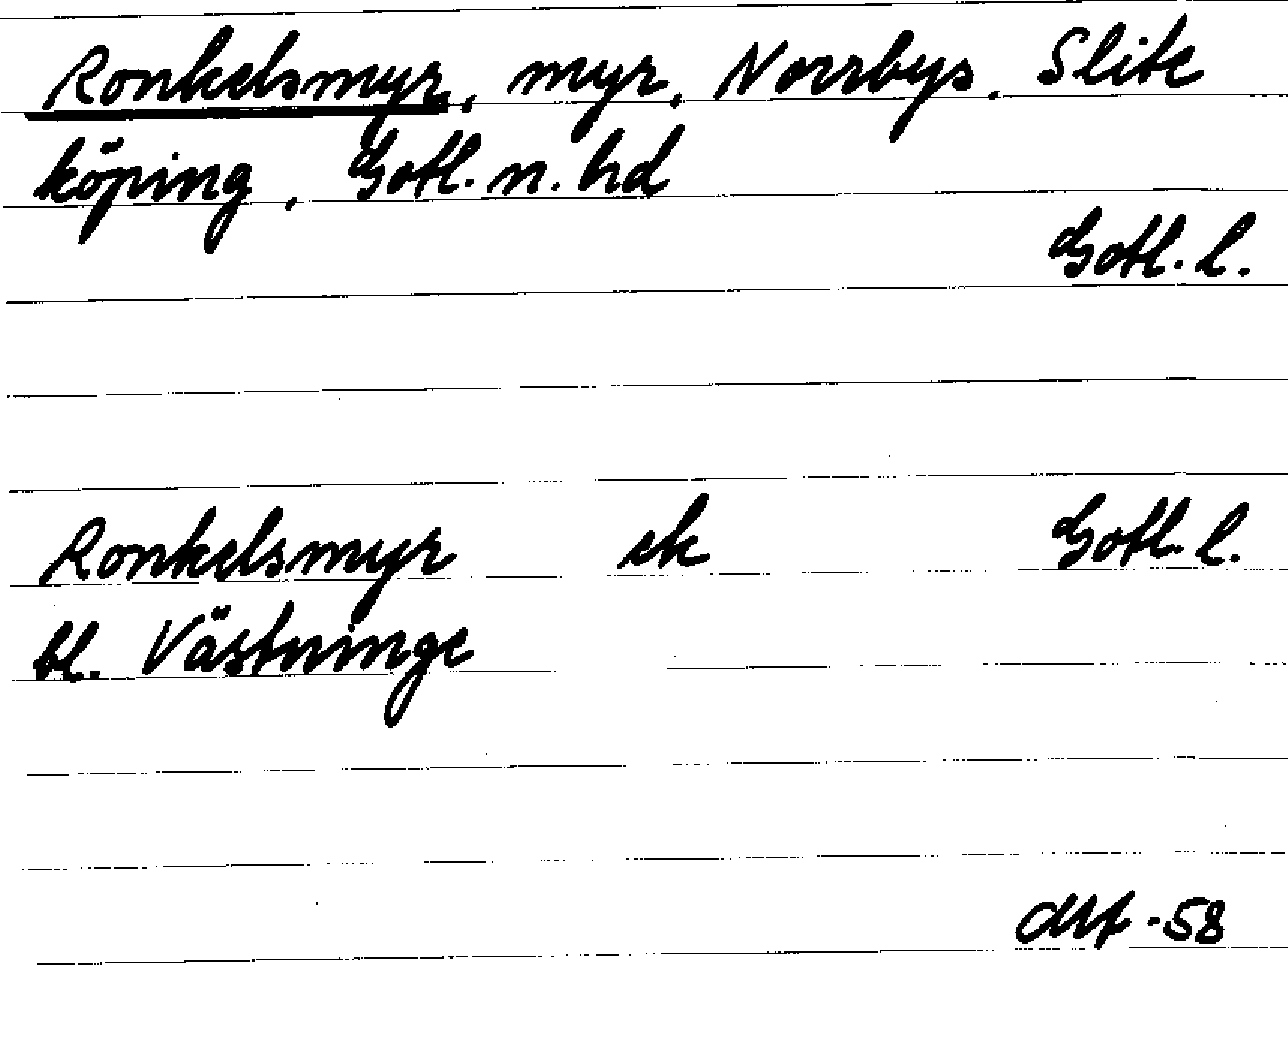 Ronkelsmyr, myr, Norrbys, Slite
köping, Gotl. n. hd
Gotl. l.
Ronkelsmyr ek Gotl. l.
bl. Västninge
-58